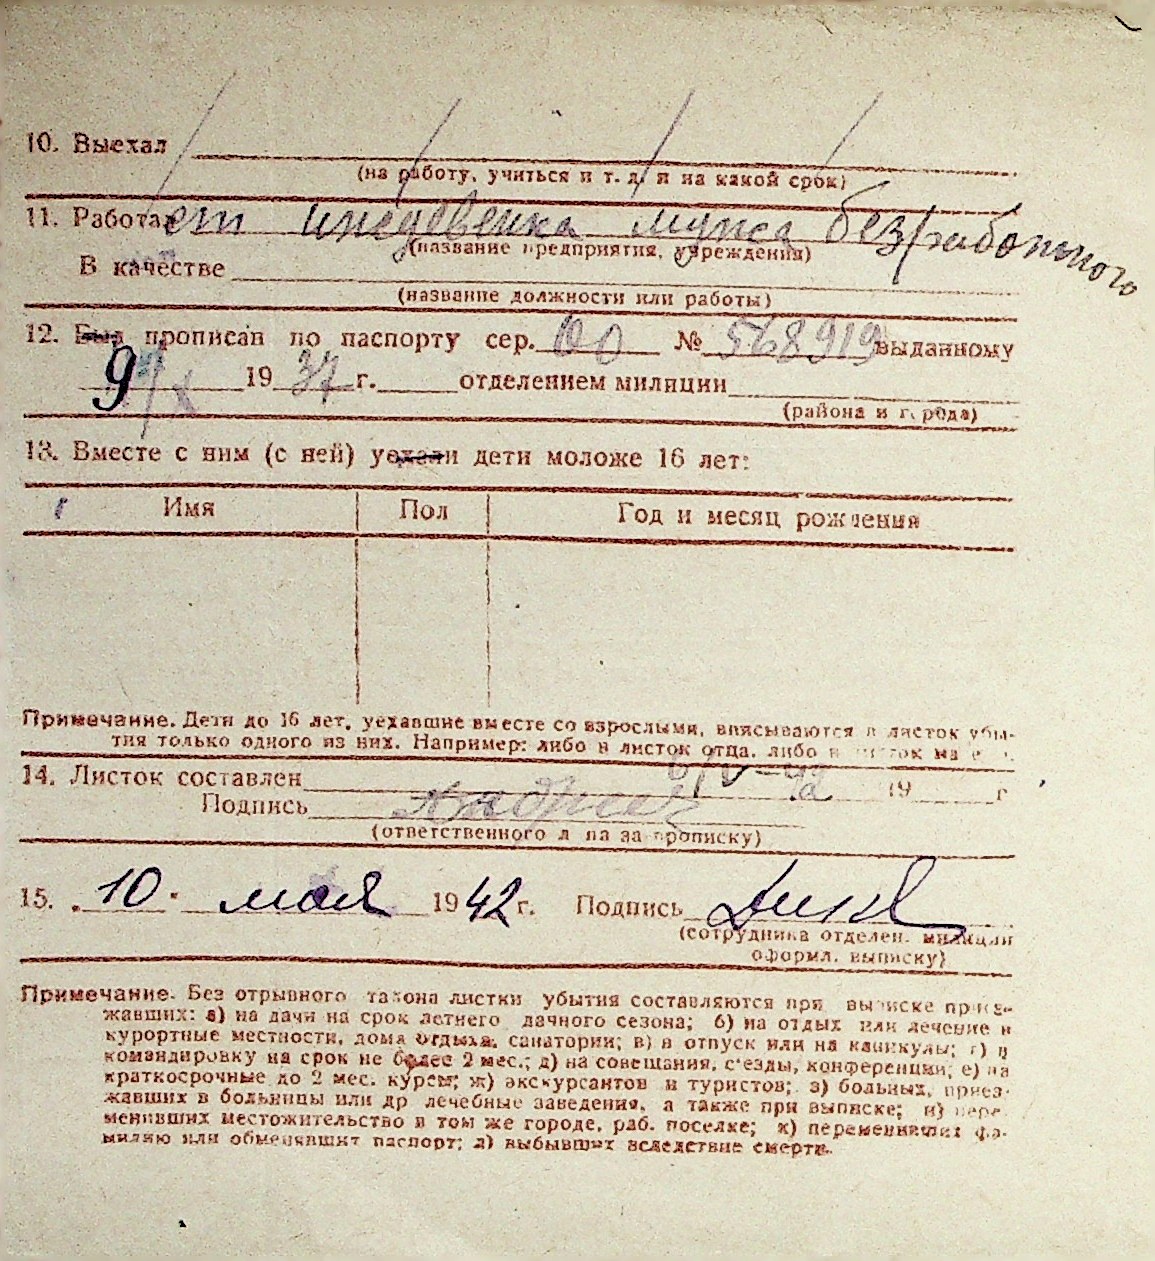 10. Выехал
(на работу, учиться и т. д. и на какой срок)
11. Работает иждевенка мужа безработного
(название предприятия, учреждения)
В качестве
(название должности или работы)
12. Был прописан по паспорту сер. № 568919 выданному
9 1937 г. отделением милиции
(района и города)
13. Вместе с ним (с ней) уехали дети моложе 16 лет:
Имя Пол Год и месяц рождения
Примечание. Дети до 16 лет, уехавшие вместе со взрослыми, вписываются в листок убы-
тия только одного из них. Например: либо в листок отца, либо в листок
14. Листок составлен 6/IV-42 19 г
Подпись
(ответственного лица за прописку)
15. 10 мая 1942 г. Подпись
(сотрудника отделен. милиции
оформл. выписку)
Примечание. Без отрывного талона листки убытия составляются при выписке приез-
жавших: а) на дачи на срок летнего дачного сезона; б) на отдых или лечение в
курортные местности, дома отдыха, санатории; в) в отпуск или на каникулы; г) в
командировку на срок не более 2 мес.; д) на совещания, съезды, конференции; е) на
краткосрочные до 2 мес. курсы; ж) экскурсантов и туристов; з) больных, приез-
жавших в больницы или др лечебные заведения, а также при выписке; и) пере-
менивших местожительство в том же городе, раб. поселке; к) переменивших фа-
милию или обменявших паспорт; л) выбывших вследствие смерти.